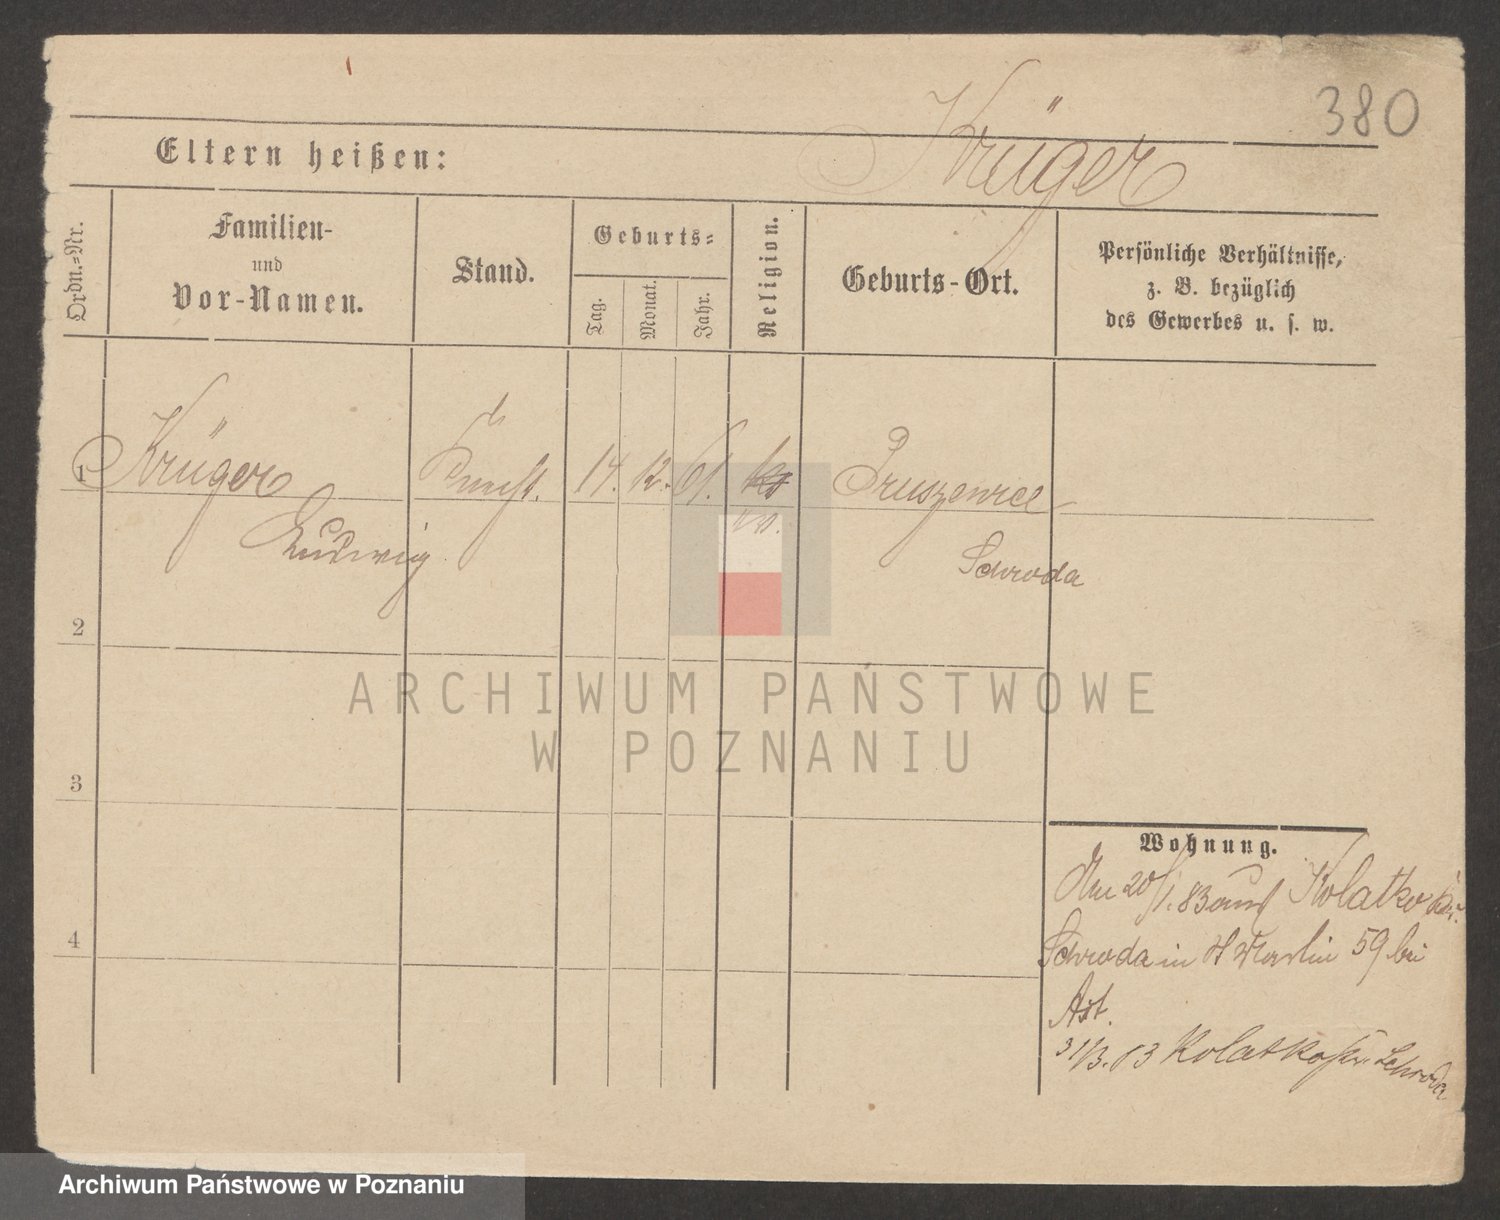 380
Krüger
Eltern heißen:
Ordn.-Nr.
Familien-
und
Vor-Namen.
Stand.
Geburts-
Tag.
Monat.
Jahr.
Religion.
Geburts-Ort.
Persönliche Verhältnisse,
z. B. bezüglich
des Gewerbes u. s. w.
1
Krüger
Ludwig
Knecht.
14.
12.
61.
Pruszewice
Schroda
2
3
4
Wohnung.
Am 20/1.83 auf Kolatko Kr.
Schroda in St Martin 59 bei
Ast.
31/3.83 Kolatka Kr. Schroda
ARCHIWUM PAŃSTWOWE
W POZNANIU
Archiwum Państwowe w Poznaniu